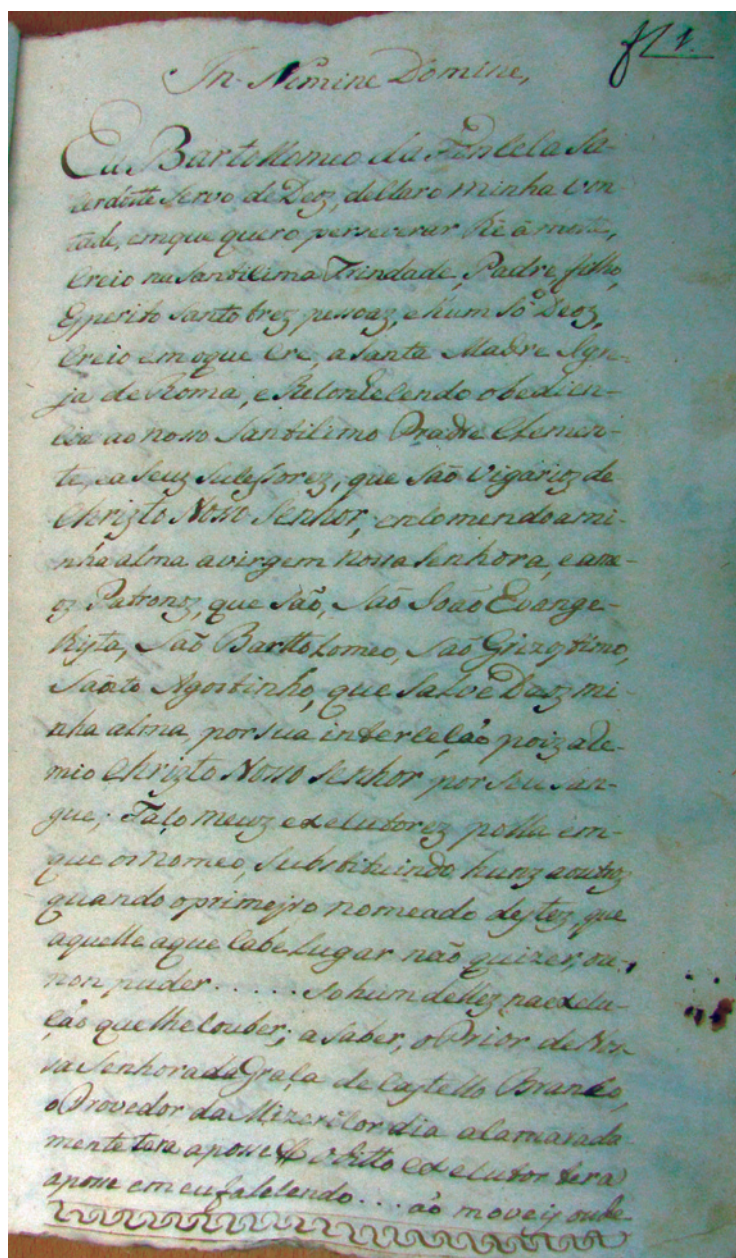 fl 1.
In Nomine Domine,
Eu Bartollomeo da Fonceca Sa-
cerdotte Servo de Deoz, declaro minha von
tade, em que quero perseverar thé â morte,
Creio na Santicima Trindade, Padre filho,
Esperito Santo trez pessoaz, e hum só Deoz,
Creio em o que Cre, a Santa Madre Igre-
ja de Roma, e Reconhecendo obedien-
cia ao nosso Santicimo Pradre Clemen-
te, e a Seuz Sucessorez, que São Vigarioz de
Christo Nosso Senhor, encomendo a mi-
nha alma a virgem nossa Senhora, e a me-
oz Patronoz, que São, São João Evange-
lista, São Barttolomeo, São Grizostimo,
Saôto Agostinho, que Salve Deoz mi-
nha alma, por sua intercição poiz a Re-
mio Christo Nosso Senhor por Seu san-
gue; Faço meuz executorez polla em-
que os nomeo, Substituindo hunz a outroz
quando o primejro nomeado destez, que
aquelle a que Cabe Lugar não quizer, ou,
non puder...... So hum dellez na execu-
ção que lhe Couber; a Saber, o Prior de Nos-
sa Senhora da Graça de Castello Branco,
o Provedor da Mizericordia
mente tera a posse executor tera
aposse em eu falecendo... ao moveis